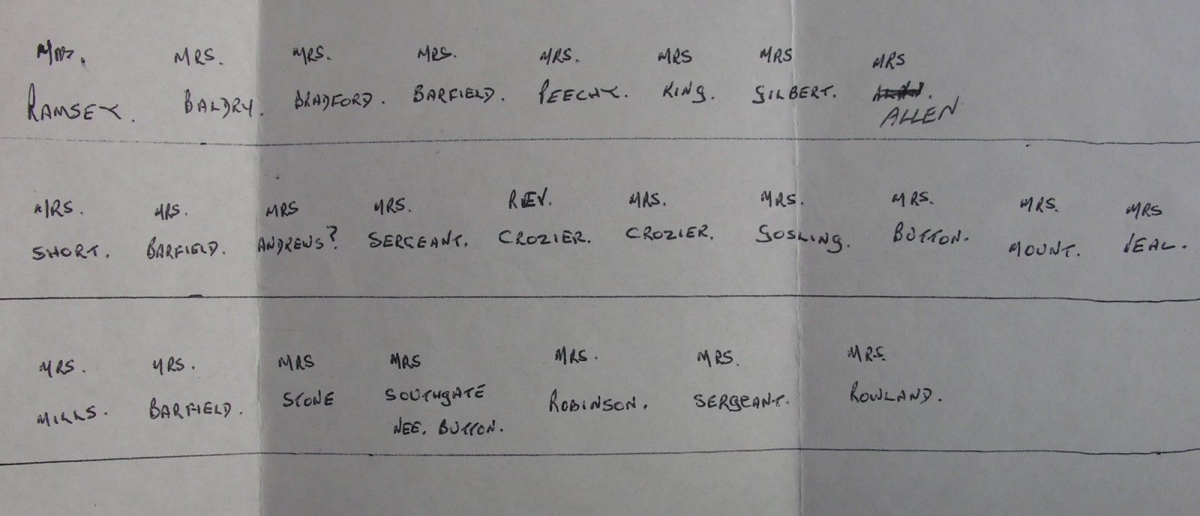 MRS. MRS. MRS. MRS. MRS. MRS MRS MRS
RAMSEY. BALDRY. BRADFORD. BARFIELD. PEECHY. KING. GILBERT.
ALLEN
MRS. MRS. MRS MRS. REV. MRS. MRS. MRS. MRS. MRS
SHORT. BARFIELD. ANDREWS? SERGEANT. CROZIER. CROZIER. GOSLING. BUTTON. MOUNT. VEAL.
MRS. MRS. MRS MRS MRS. MRS. MRS.
MILLS. BARFIELD. STONE SOUTHGATE ROBINSON. SERGEANT. ROWLAND.
NEE. BUTTON.